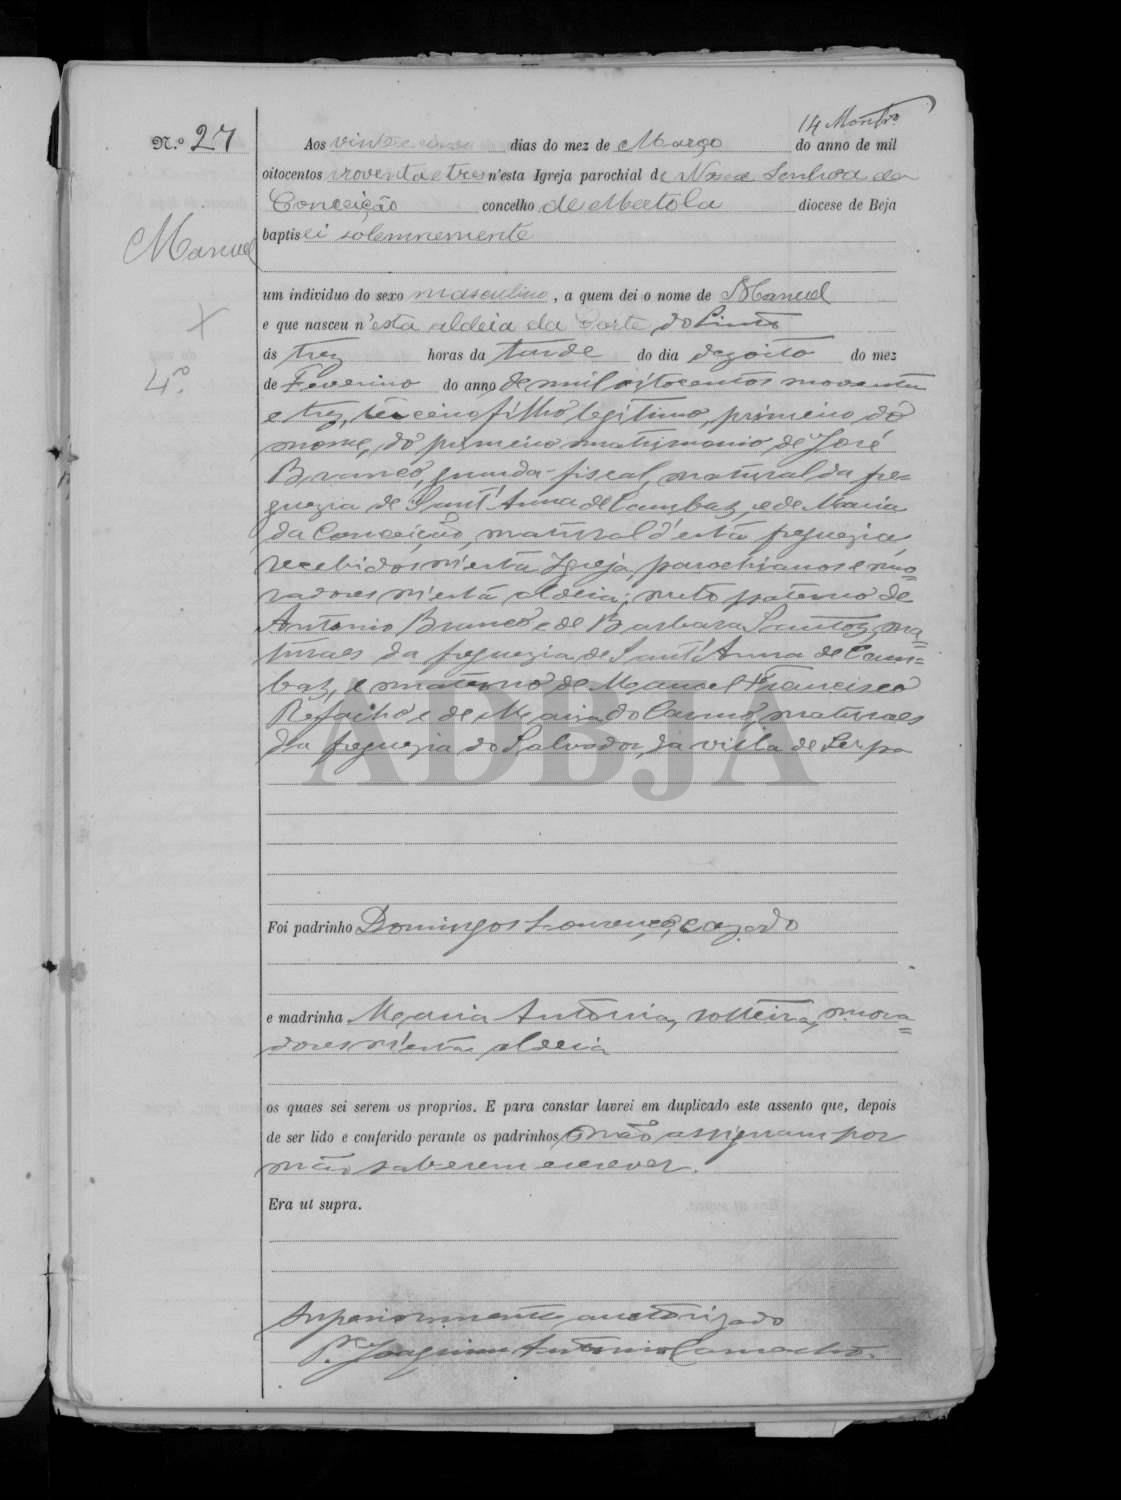 14 Montr.º
N.º 27
Aos vinte e dias do mez de Março do anno de mil
oitocentos noventa e tres n'esta Igreja parochial de Nossa Senhora da
Conceição concelho de Mertola diocese de Beja
Manuel
baptisei solemnemente
um individuo do sexo masculino, a quem dei o nome de Manuel
e que nasceu n'esta aldeia da Corte do Pinto
ás trez horas da tarde do dia dezoito do mez
4.º
de Fevereiro do anno de mil oitocentos noventa
e trez, terceiro filho legitimo, primeiro do
nome, do primeiro matrimonio de José
Branco, guarda-fiscal, natural da fre-
guezia de Sant'Anna de Cambas, e de Maria
da Conceição, natural d'esta freguezia,
recebidos n'esta Igreja, parochianos e mo=
radores n'esta aldeia; neto paterno de
Antonio Branco e de Barbara Santos, na=
turaes da freguezia de Sant'Anna de Cam=
bas, e materno de Manoel Francisco
e de Maria do Carmo, naturaes
da freguezia do Salvador, da villa de Serpa
ADBJA
Foi padrinho Domingos Lourenço, cazado
e madrinha Maria Antonia, solteira, mora=
dores n'esta aldeia
os quaes sei serem os proprios. E para constar lavrei em duplicado este assento que, depois
de ser lido e conferido perante os padrinhos não assignam por
não saberem escrever.
Era ut supra.
Superiormente auctorizado
P.e Joaquim Antonio Camacho.